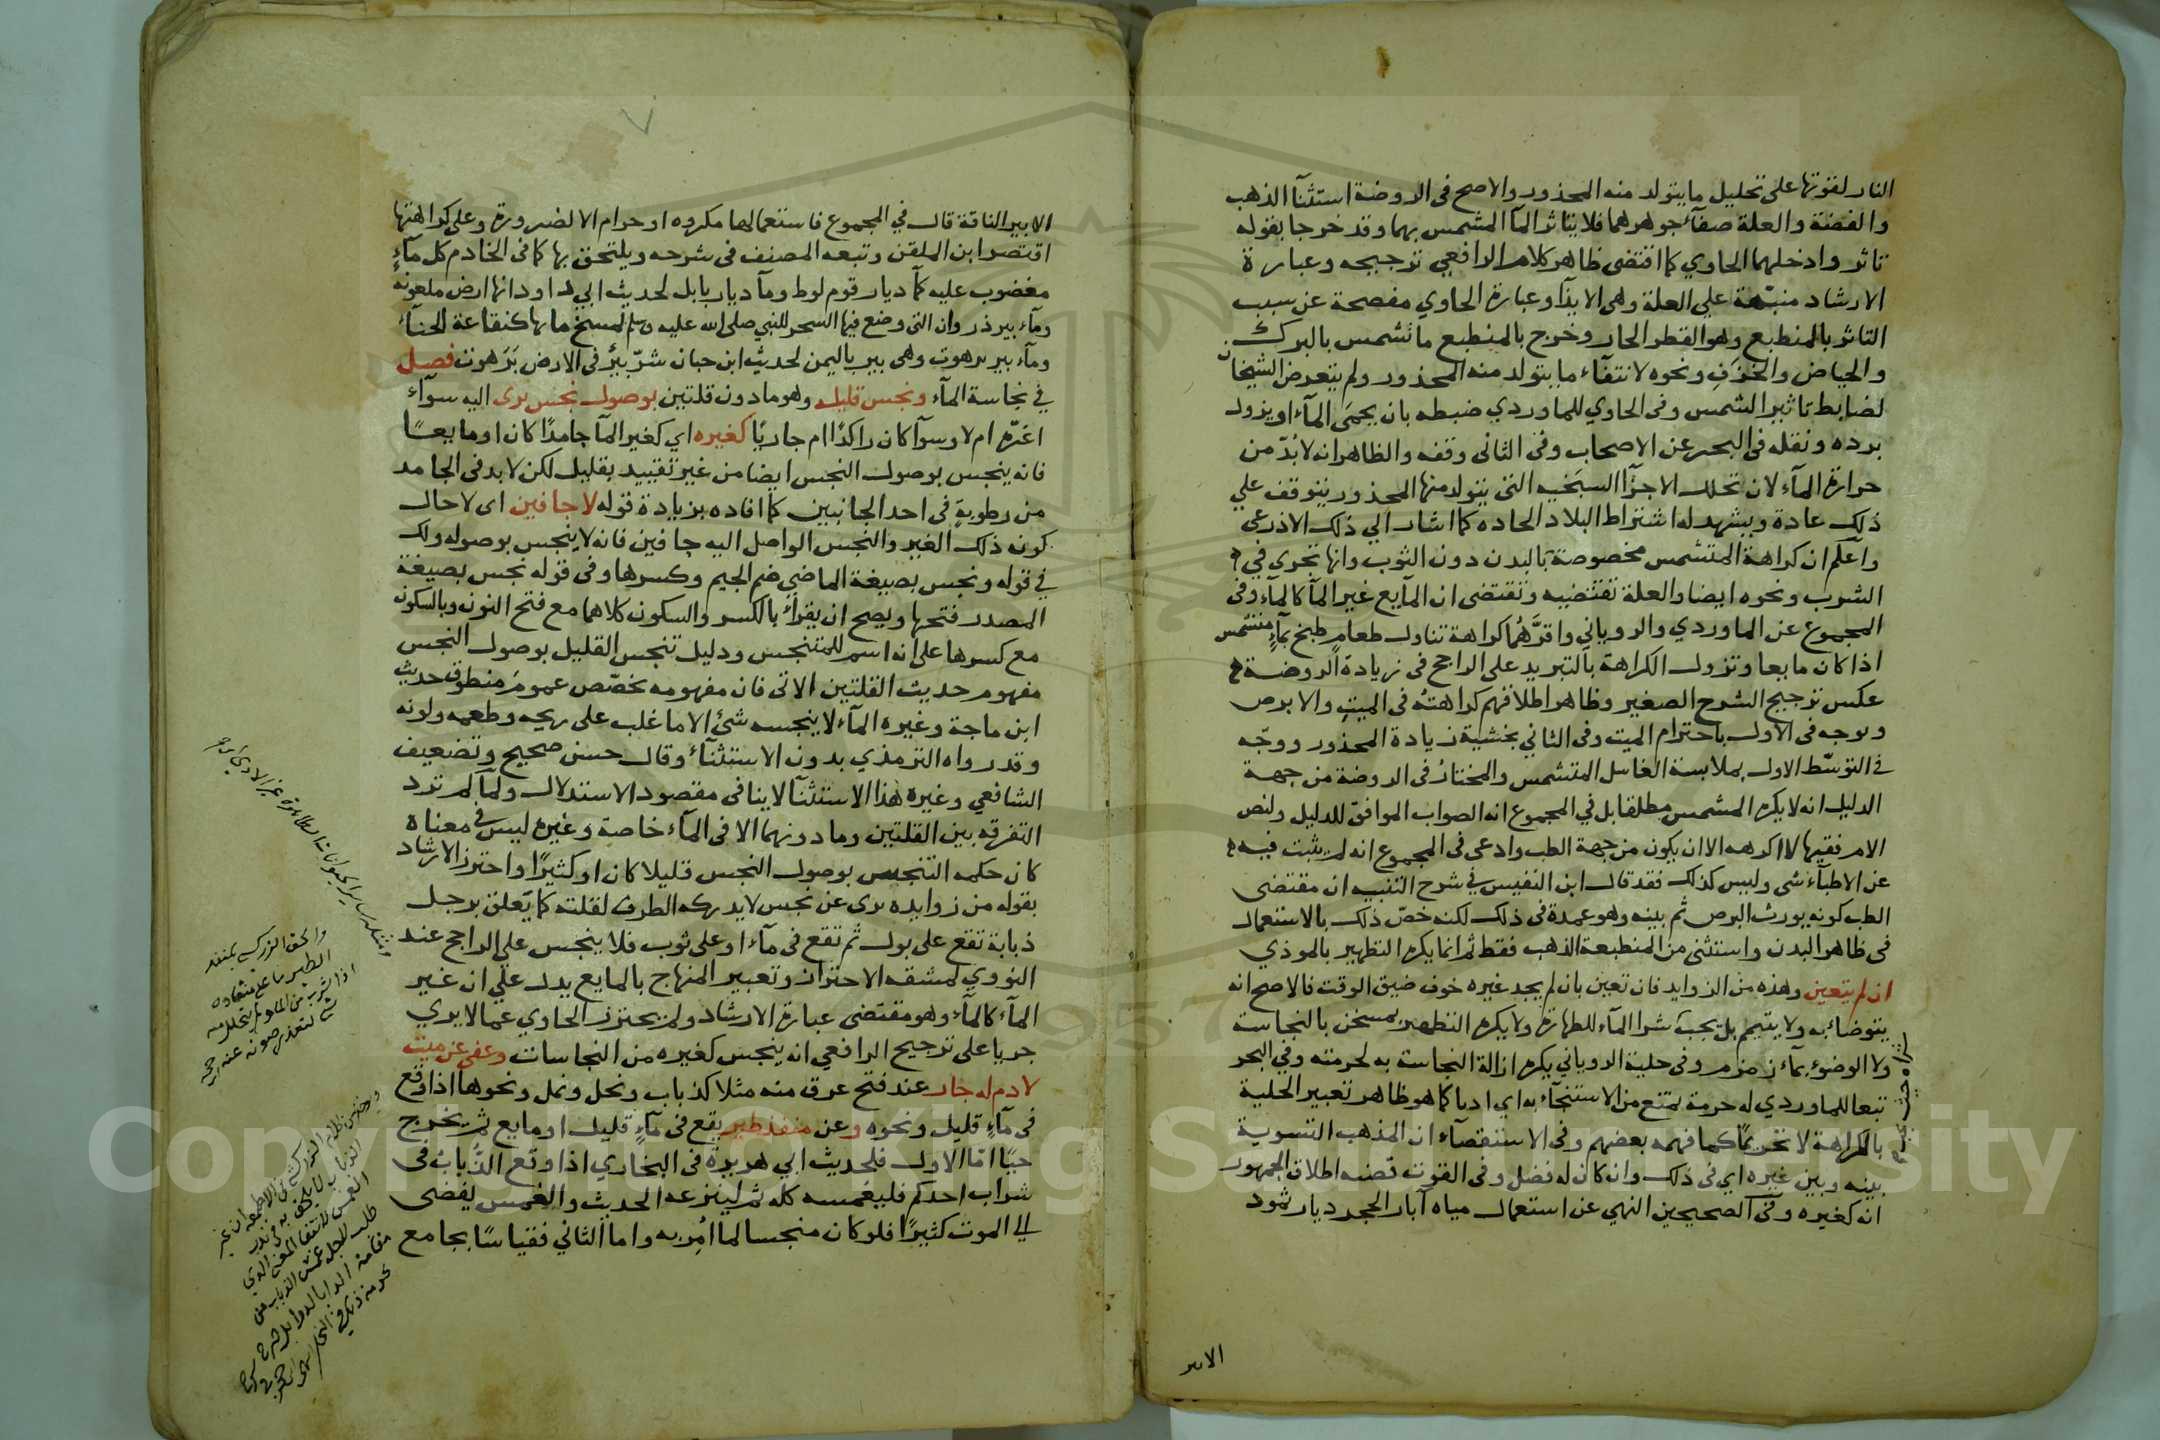 النار لقوتها على تحليل ما يتولد منه المحذور والاصح فى الروضة استثنآ الذهب
والفضة والعلة صفآء جوهرهما فلا يتاثر المآ المشمس بهما وقد خرجا بقوله
تاثر وادخلهما الحاوي كما اقتضى ظاهر كلام الرافعي ترجيحه وعبارة
الارشاد منبّهة على العلة وهى الايذآ وعبارة الحاوي مفصحة عن سبب
التاثر بالمنطبع وهو القطر الحار وخرج بالمنطبع ما تشمس بالبرك
والحياض والخزف ونحوه لانتفآء ما يتولد منه المحذور ولم يتعرض الشيخان
لضابط تاثير الشمس وفى الحاوي للماوردي ضبطه بان يحمَى المآء او يزول
برده ونقله فى البحر عن الاصحاب وفى الثانى وقفه والظاهر انه لا بُدّ من
حرارة المآء لان تحلل الاجزآ السبَخيه التى يتولد منها المحذور يتوقف علي
ذلك عادة ويشهد له اشتراط البلاد الحاده كما اشار الي ذلك الاذرعى
وآعلم ان كراهة المتشمس مخصوصة بالبدن دون الثوب وانها تجري في
الشرب ونحوه ايضا والعلة تقتضيه وتقتضى ان المآيع غير المآ كالمآء وفى
المجموع عن الماوردي والروياني واقرَّهُما كراهة تناول طعام طبخ بمآءٍ متشمس
اذا كان مايعا وتزول الكراهة بالتبريد على الراجح فى زيادة الروضة
عكس ترجيح الشرح الصغير وظاهر اطلاقهم كراهته فى الميت والابرص
ووجه فى الاول باحترام الميت وفى الثاني بخشية زيادة المحذور ووجّه
في التوسّط الاول بملابسة الغاسل المتشمس والمختار فى الروضة من جهة
الدليل انه لا يكره المشمس مطلقا بل في المجموع انه الصواب الموافق للدليل ولنص
الام فقيها لا اكرهه الا ان يكون من جهة الطب وادعى فى المجموع انه لم يثبت فيه
عن الاطبآء شى وليس كذلك فقد قال ابن النفيس في شرح التنبيه ان مقتضى
الطب كونه يورث البرص ثم بينه وهو عمدة فى ذلك لكنه خصّ ذلك بالاستعمال
فى ظاهر البدن واستثنى من المنطبعة الذهب فقط ثم انما يكره التطهير بالموذي
ان لم يتعين وهذه من الزوايد فان تعين بان لم يجد غيره خوف ضيق الوقت فالاصح انه
يتوضاء به ولا يتيمم بل يجب شرا المآء للطهارة ولا يكره التطهير بمسخن بالنجاسة
ولا الوضؤ بمآء زمزم وفى حلية الروياني يكره ازالة النجاسة به لحرمته وفي البحر
تبعا للماوردي له حرمة يمتنع من الاستنجآء به اي ادبا كما هو ظاهر تعبير الحلية
بالكراهة لا تحريمًا كما فهمه بعضهم وفى الاستقصآء ان المذهب التسوية
بينه وبين غيره اي فى ذلك وان كان له فضل وفى القوت قضية اطلاق الجمهور
انه كغيره وفى الصحيحين النهي عن استعمال مياه آبار الحجر ديار ثمود
الابير
الا بير الناقة قال في المجموع فاستعمالها مكروه او حرام الا لضرورة وعلى كراهتها
اقتصر ابن الملقن وتبعه المصنف فى شرحه ويلتحق بها كما فى الخادم كل مآءٍ
مغضوب عليه كمآ ديار قوم لوط ومآ ديار بابل لحديث ابي داود انها ارض ملعونه
ومآء بير ذروان التى وضع فيها السحر للنبي صلى الله عليه وسلم لمسخ مايها كنقاعة الحنآء
ومآء بير برهوت وهى بير باليمن لحديث ابن حبان شرّ بيرٍ فى الارض بَرَهوت فصل
في نجاسة المآء ونجس قليل وهو ما دون قلتين بوصول نجس يرى اليه سوآء
اغيّره ام لا وسوآ كان راكدًا ام جاريًا كغيره اي كغير المآ جامدًا كان او مايعًا
فانه ينجس بوصول النجس ايضا من غير تقييد بقليل لكن لا بد فى الجامد
من رطوبةٍ فى احد الجانبين كما افاده بزيادة قوله لا جافين اى لا حال
كونه ذلك الغير والنجس الواصل اليه جافين فانه لا ينجس بوصوله ولك
في قوله ونجس بصيغة الماضي ضم الجيم وكسرها وفى قوله نجس بصيغة
المصدر فتحها ويصح ان يقرأ بالكسر والسكون كلاهما مع فتح النون وبالسكون
مع كسرها على انه اسم للمتنجس ودليل تنجس القليل بوصول النجس
مفهوم حديث القلتين الاتى فان مفهومه يخصّص عموم منطوق حديث
ابن ماجة وغيره المآء لا ينجسه شئ الا ما غلب على ريحه وطعمه ولونه
وقد رواه الترمذي بدون الاستثنآء وقال حسن صحيح وتضعيف
الشافعي وغيره هذا الاستثنآ لا ينافى مقصود الاستدلال ولمآ لم ترد
التفرقه بين القلتين وما دونهما الا فى المآء خاصة وغيره ليس في معناه
كان حكمه التنجس بوصول النجس قليلا كان او كثيرًا واحترز الارشاد
بقوله من زوايده يرى عن نجس لا يدركه الطرف لقلته كما يعلق برجل
ذبابة تقع على بول ثم تقع فى مآء او على ثوب فلا ينجس على الراجح عند
النووي لمشقه الاحتراز وتعبير المنهاج بالمايع يدل على ان غير
المآء كالمآء وهو مقتضى عبارة الارشاد ولم يحترز الحاوي عما لا يري
جريا على ترجيح الرافعي انه ينجس كغيره من النجاسات وعفى عن ميت
لا دم له جار عند فتح عرق منه مثلا كذباب ونحل ونمل ونحوها اذا وقع
فى مآءٍ قليل ونحوه وعن منفذ طير يقع فى مآءٍ قليل او مايع ثم يخرج
حيًا امّا الاول فلحديث ابي هريرة فى البخاري اذا وقع الذباب فى
شراب احدكم فليغمسه كله ثم لينزعه الحديث والغمس يفضى
الى الموت كثيرًا فلو كان منجسا لما امُر به واما الثاني فقياسًا بجامع
Copyright © King Saud University
1957